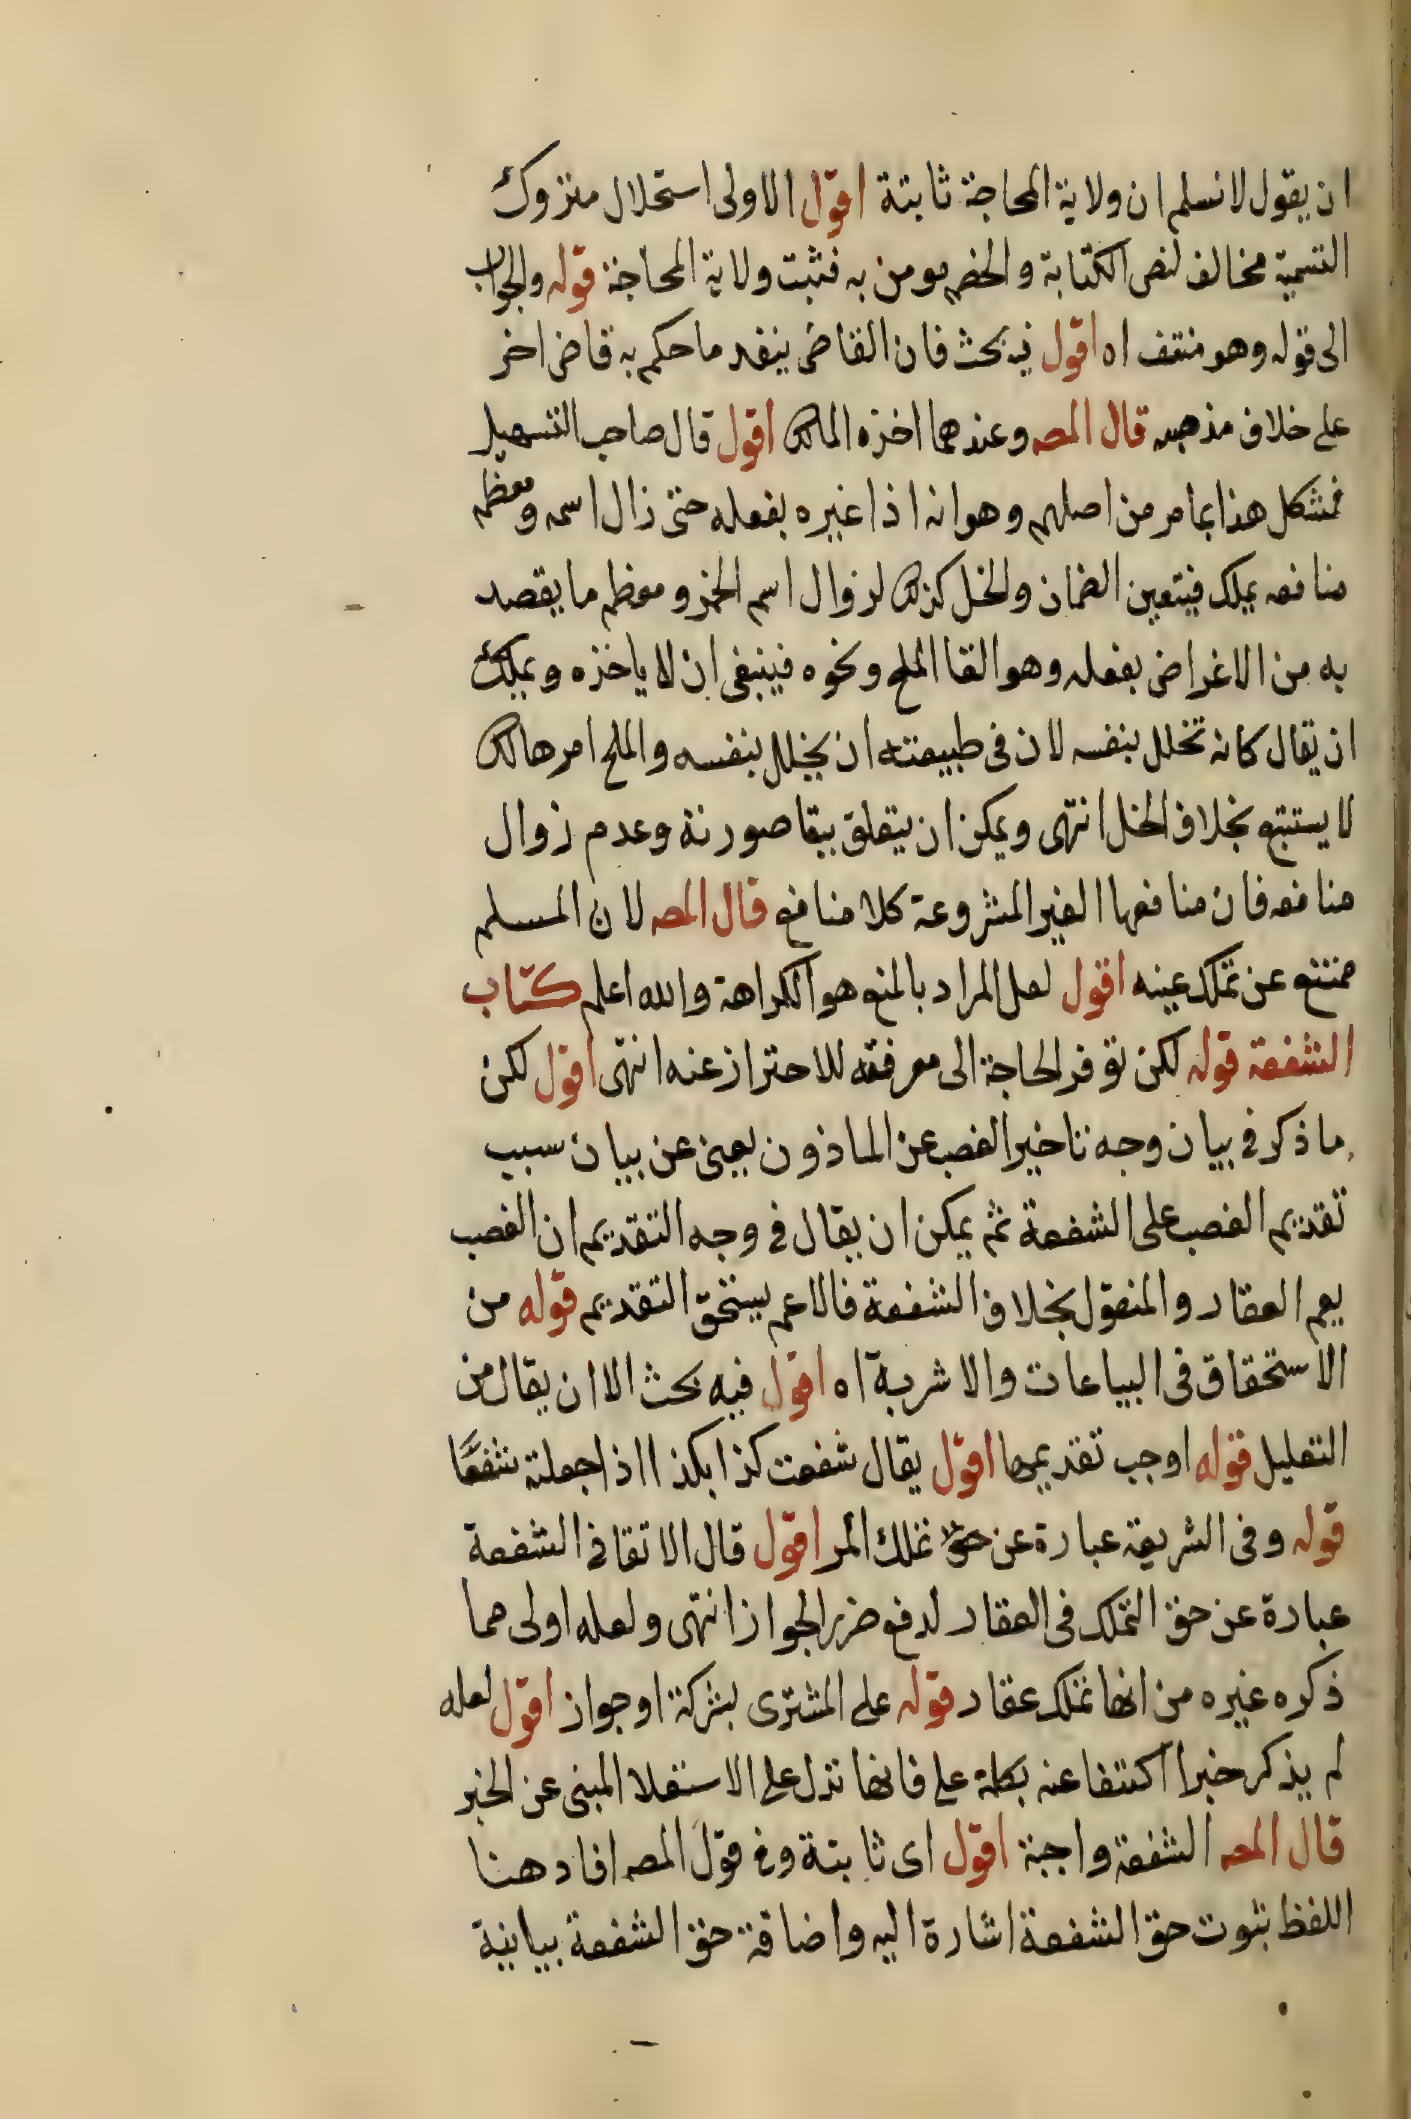 ان يقول لا نسلم ان ولاية المحاجة ثابتة اقول الاولى استحلال متروك
التسمية مخالف لنص الكتابة والخصم مومن به فثبت ولاية المحاجة قوله والجواب
الى قوله وهو منتف اه اقول فيه بحث فان القاضى ينفد ما حكم به قاض اخر
على خلاف مذهبه قال المصه وعندهما اخذه المالك اقول قال صاحب التسهيل
فمشكل هذا بما مر من اصلهم وهو انه اذا غيره بفعله حتى زال اسمه ومعظم
منافعه يملك فيتعين الضمان والخل كذلك لزوال اسم الخمر ومعظم ما يقصد
به من الاغراض بفعله وهو القا الملح ونحوه فينبغى ان لا ياخذه ويملك
ان يقال كانه تخلل بنفسه لان فى طبيعته ان يخلل بنفسه والملح امر هالك
لا يستتبع بخلاف الخل انتهى ويمكن ان يتعلق ببقا صورته وعدم زوال
منافعه فان منافعها الغير المشروعة كلا منافع قال المصه لان المسلم
ممتنع عن تملك عينه اقول لعل المراد بالمنع هو الكراهة والله اعلم كتاب
الشفعة قوله لكن توفر الحاجة الى معرفته للاحتراز عنه انتهى اقول لكن
ما ذكر في بيان وجه تاخير الغصب عن الماذون يعنى عن بيان سبب
تقديم الغصب على الشفعة ثم يمكن ان يقال في وجه التقديم ان الغصب
يعم العقار والمنقول بخلاف الشفعة فالاعم يستحق التقديم قوله من
الاستحقاق فى البياعات والاشربة اه اقول فيه بحث الا ان يقال من
التعليل قوله اوجب تقديمها اقول يقال شفعت كذا بكذا اذا جعلته شفعًا
قوله وفى الشريعة عبارة عن تملك المر اقول قال الاتقانى الشفعة
عبارة عن حق التملك فى العقار لدفع ضرر الجواز انتهى ولعله اولى مما
ذكره غيره من انها تملك عقار قوله على المشترى بشركة او جواز اقول لعله
لم يذكر خبرا اكتفا عنه بكلمة على فانها تدل على الاستعلا المبنى عن الخبر
قال المصه الشفعة واجبة اقول اى ثابتة وفي قول المصه افاد هنا
اللفظ بثبوت حق الشفعة اشارة اليه واضافة حق الشفعة بيانية